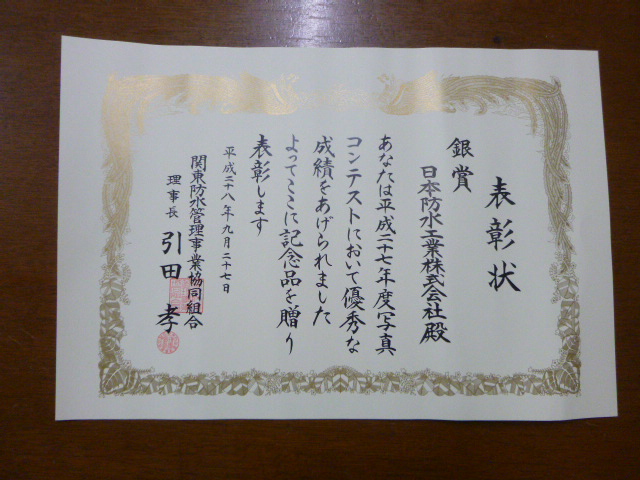 表彰状
銀賞
日本防水工業株式会社殿
あなたは平成二十七年度写真
コンテストにおいて優秀な
成績をあげられました
よってここに記念品を贈り
表彰します
平成二十八年九月二十七日
関東防水管理事業協同組合
理事長 引田 孝